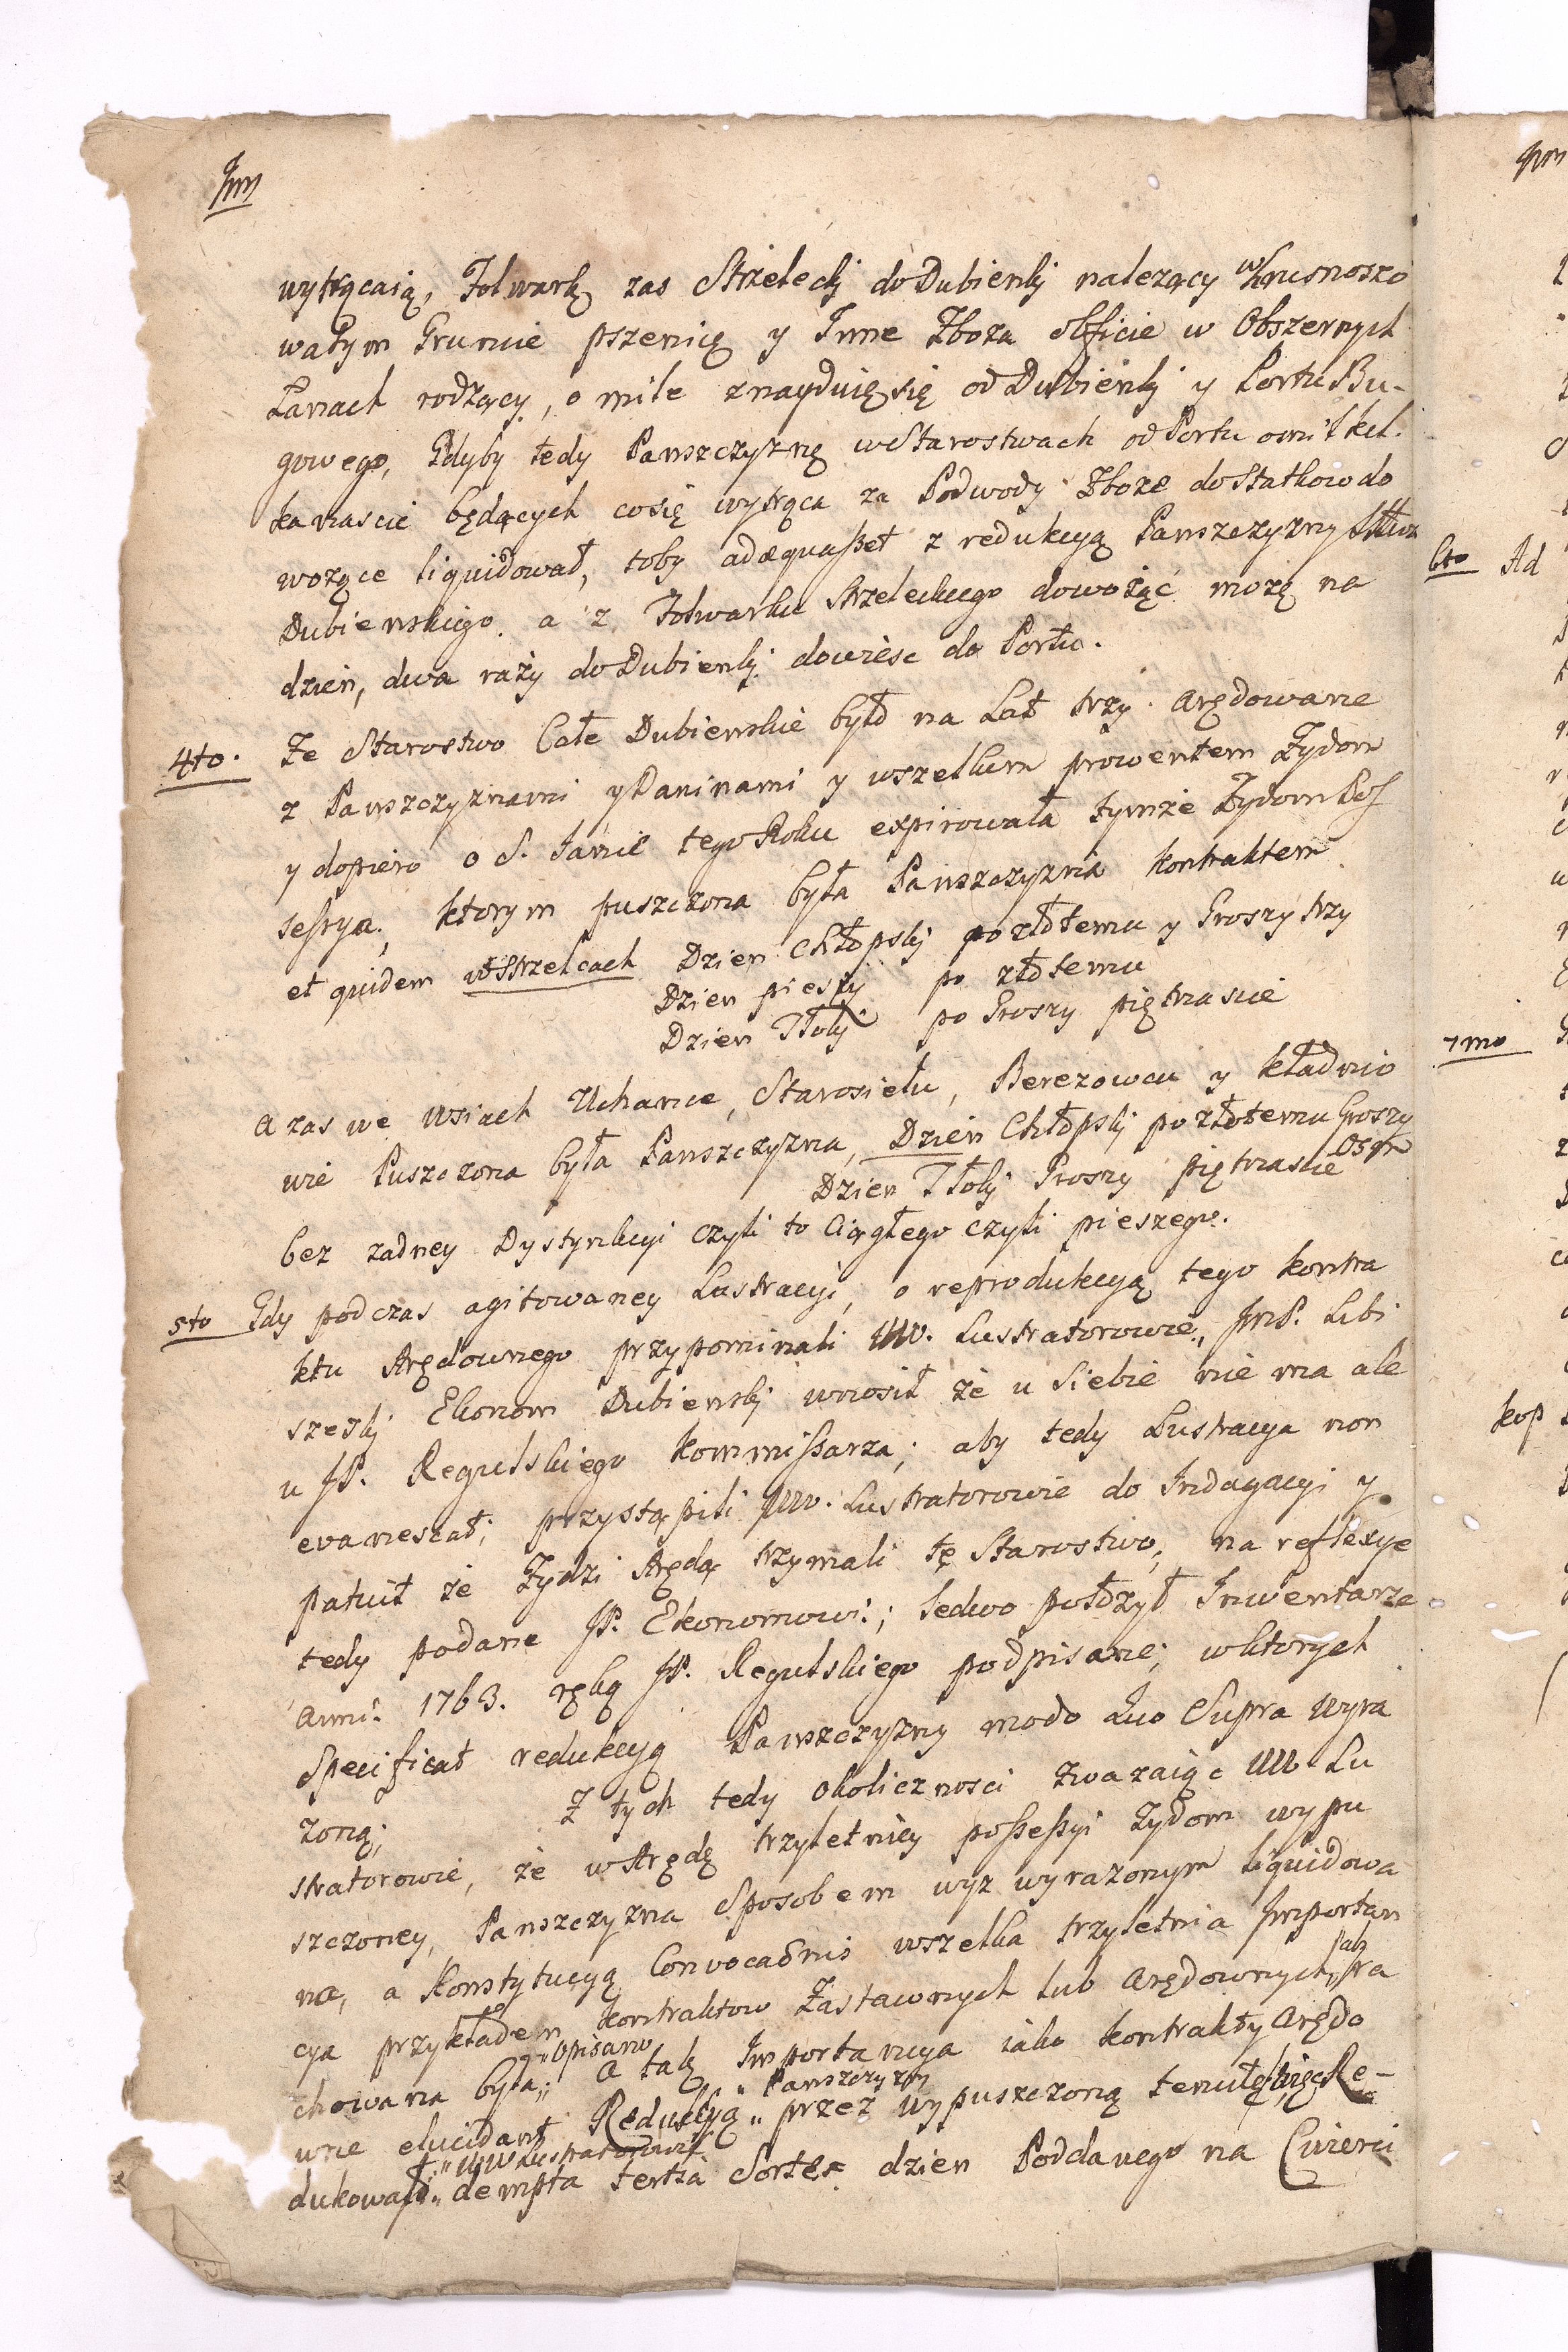 Jm
wytrącaią, Folwark zas Strzelecki do Dubienki nalezący w Krusnoszo
watym Gruncie pszenicę y Inne Zboza obficie w Obszernych
Łanach rodzący, o mile znayduię się od Dubienki y Portu Bu-
gowego, Gdyby tedy Panszczyznę w Starostwach od Portu o mil kel-
kanascie będących co się wytrąca za Podwody Zboze do Statkow do
wozące liquidował, toby adæquasset z redukcyą Panszczyzny Sttwa
Dubienskiego. a z Folwarku Strzeleckiego dowożąć mozę na
dzień, dwa razy do Dubienki dowiesc do Portu.
4to. Ze Starostwo Całe Dubienskie było na Lat trzy Arędowane
z Panszczyznami y Daninami y wszelkiem prowentem Żydom
y dopiero o S. Janie tego Roku expirowała tymże Żydom Pos
sessya, ktorym puszczona była Panszczyzna kontraktem
et quidem w Strzelcach Dzien Chłopski po złotemu y Groszy trzy
Dzien pieszy po złotemu
Dzien Tłoki po Groszy piętnascie
A zas we Wsiach Uchance, Starosielu, Berezowcu y Kładnio
wie Puszczona była Panszczyzna, Dzien Chłopski po złotemu Groszy
Osm
Dzien Tłoki Groszy piętnascie
bez zadney Dystynkcyi czyli to Ciągłego czyli pieszego.
5to Gdy podczas agitowaney Lustracyi, o reprodukcyą tego kontra
ktu Arędownego przypominali WW. Lustratorowie, JmP. Libi
szeski Ekonom Dubienski wnosił że u Siebie nie ma ale
u JP. Regulskiego Kommissarza; aby tedy Lustracya non
evanescat, przystąpili WW. Lustratorowie do Indagacyi y
patuit że Żydzi Arędą trzymali tę Starostwo, na reflexye
tedy podane JP. Ekonomowi; ledwo połozył Inwentarze
Anni 1763. ręką JP. Regulskiego podpisane; w ktorych
Specificat redukcyą Panszczyzny modo quo Supra wyra
zoną; Z tych tedy okolicznosci Zwazaiąc WW Lu
stratorowie, że w Arędę trzyletniey possessyi Żydom wypu
szczoney, Panszczyzna Sposobem wyz wyrazonym liquidowa
na, a Konstytucyą Convocaonis wszelka trzyletnia Importan
cya przykładem kontraktow Zastawnych lub Arędownych, tra
opisano
chowana była; A tak Importancya iako kontrakty Arędo
Panszczyzn
wne elucidant Redukcyą przez wypuszczoną tenutę, więc Re-
WW Lustratorowie
dukował dempta tertia Sorte dzien Poddanego na Cwierci
6to Ad
7mo
kop